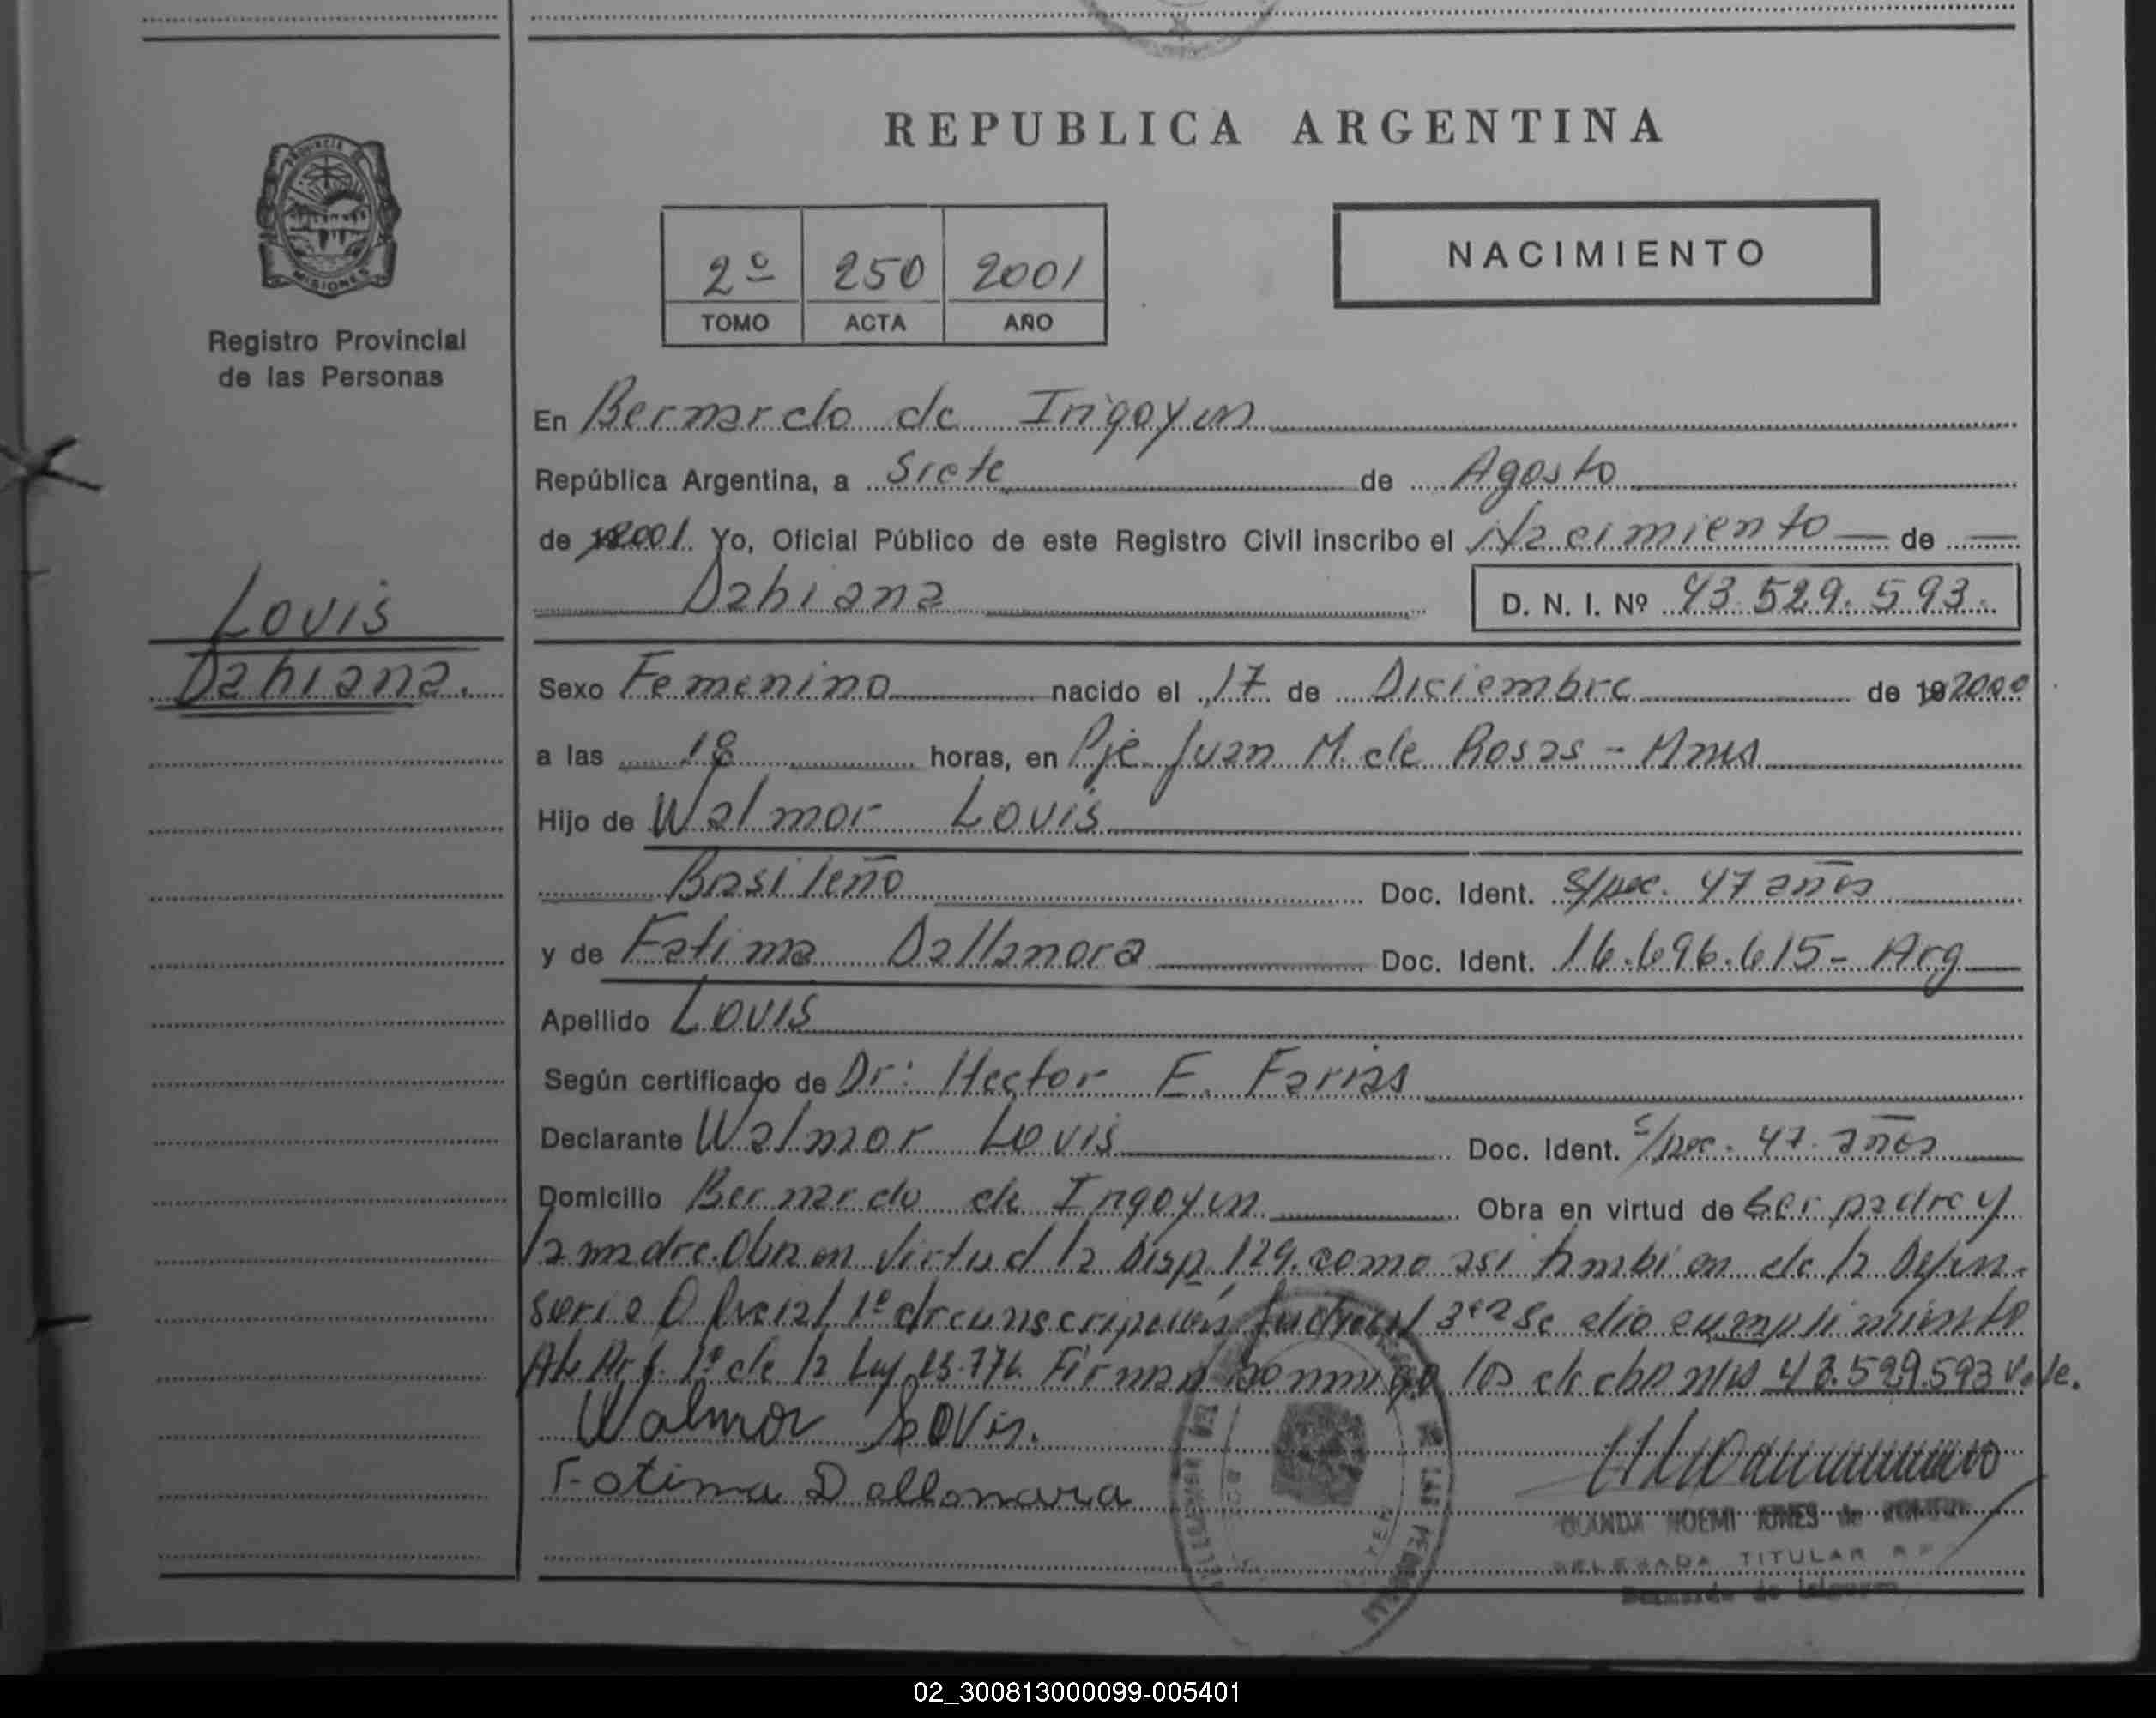 REPUBLICA ARGENTINA
PROVINCIA DE
MISIONES
Registro Provincial
de las Personas
2º 250 2001
TOMO ACTA AÑO
NACIMIENTO
En Bernardo de Irigoyen
República Argentina, a Siete de Agosto
de 2001. Yo, Oficial Público de este Registro Civil inscribo el Nacimiento de
Dahiana D. N. I. Nº 43.529.593.
Louis
Dahiana.
Sexo Femenino nacido el 17 de Diciembre de 192000
a las 18 horas, en Pje Juan M. de Rosas - Mnes
Hijo de Walmor Lovis
Brasileño Doc. Ident. S/poc. 47 años
y de Fatima Dallanora Doc. Ident. 16.696.615- Arg
Apellido Lovis
Según certificado de Dr: Hector E. Farias
Declarante Walmor Lovis Doc. Ident. S/poc. 47. años
Domicilio Bernardo de Irigoyen Obra en virtud de Ser padre y
la madre. Obra en virtud la Disp. 129. como asi tambien de la Defen-
soria Oficial 1º circunscripción Judicial 3era se dio cumplimiento
Al Art. 1º de la Ley 23.776 Firman conmigo los 43.529.593 Vale.
Walmor Lovis.
Fatima Dallanora
NOEMI de
DELEGADA TITULAR
Bernardo de Irigoyen
02_300813000099-005401